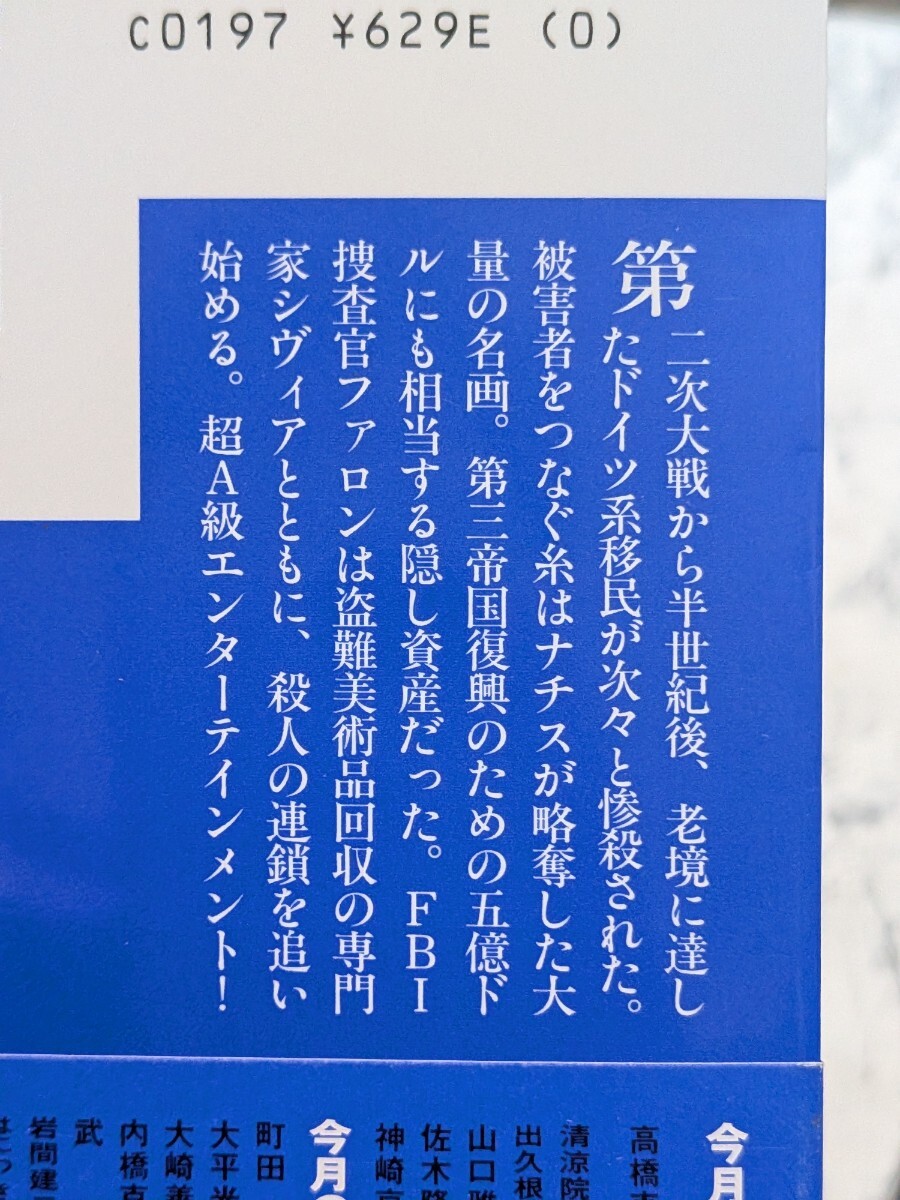 C0197 ¥629E (0)
第二次大戦から半世紀後、老境に達し
たドイツ系移民が次々と惨殺された。
被害者をつなぐ糸はナチスが略奪した大
量の名画。第三帝国復興のための五億ド
ルにも相当する隠し資産だった。FBI
捜査官ファロンは盗難美術品回収の専門
家シヴィアとともに、殺人の連鎖を追い
始める。超A級エンターテインメント!
今月
高橋
清涼院
出久根
山口雅
佐木隆
神崎京
今月
町田
大平光
大崎善
内橋克
武
岩間建二